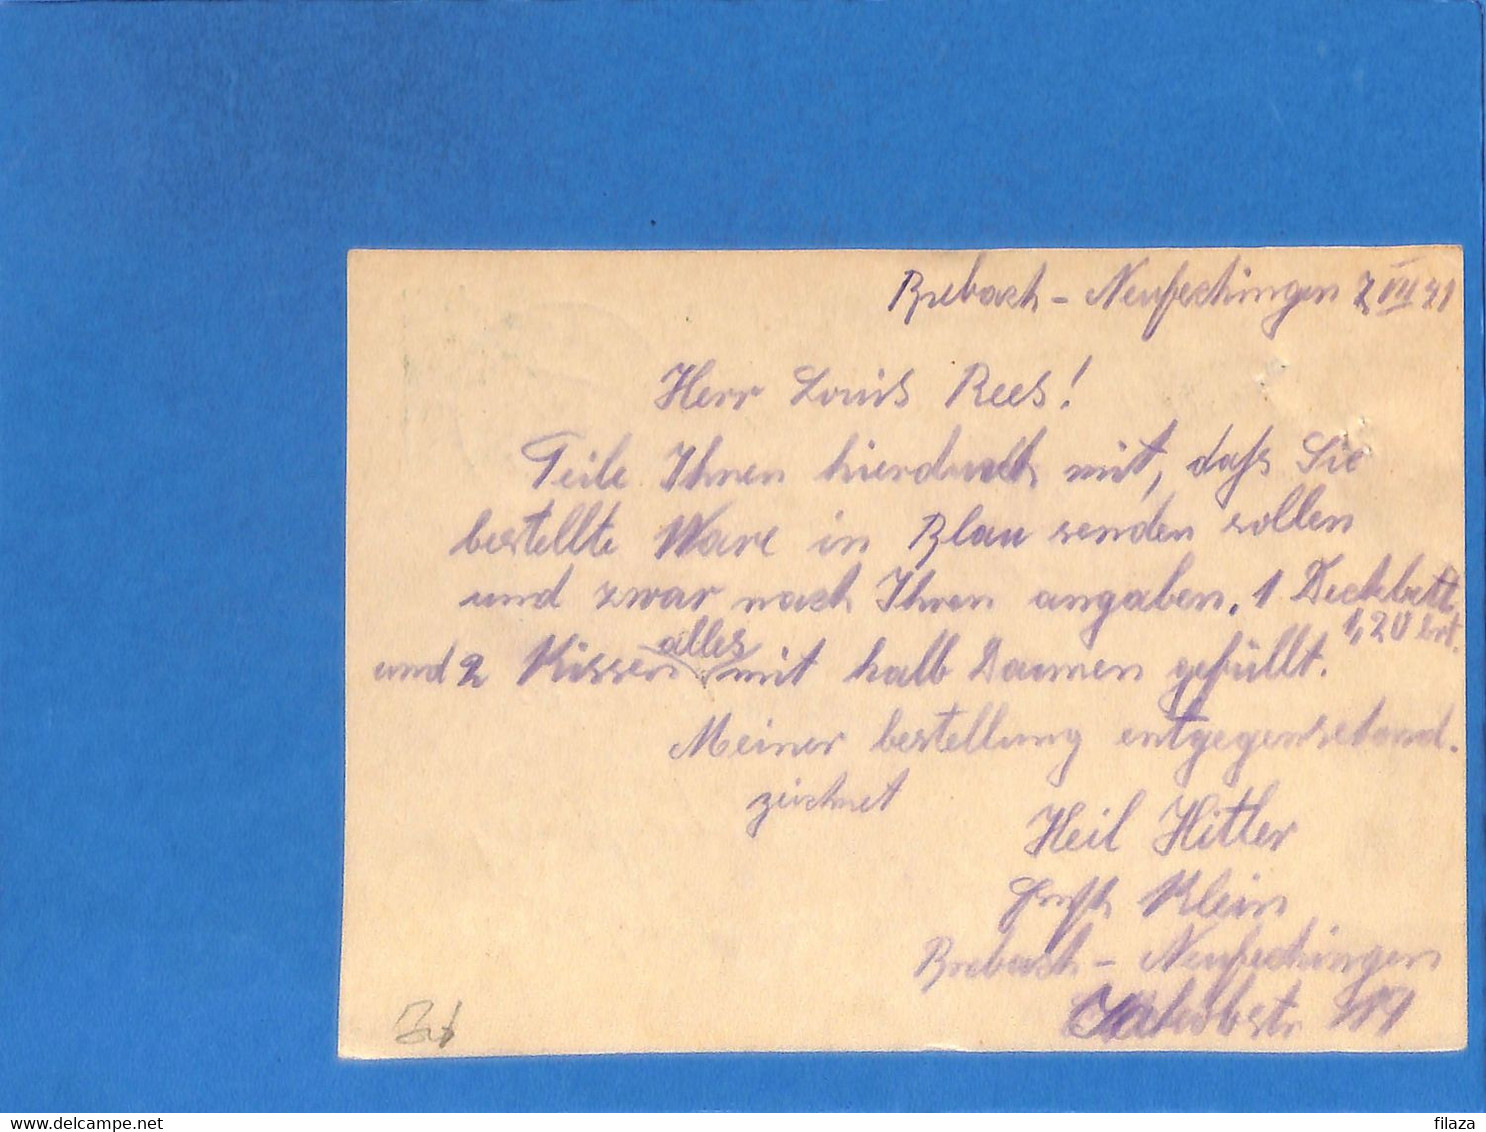 Brebach - Neufechingen 7 VII 41
Herr Louis Rees!
Teile Ihnen hierdurch mit, daß Sie
bestellte Ware in Blau senden sollen
und zwar nach Ihren angaben. 1 Deckbett
1,20 brt.
alles
und 2 Kissen mit halb Daunen gefüllt.
Meiner bestellung entgegensehand.
zeichnet
Heil Hitler
Klein
Brebach - Neufechingen
Jakobstr
delcampe.net
filaza